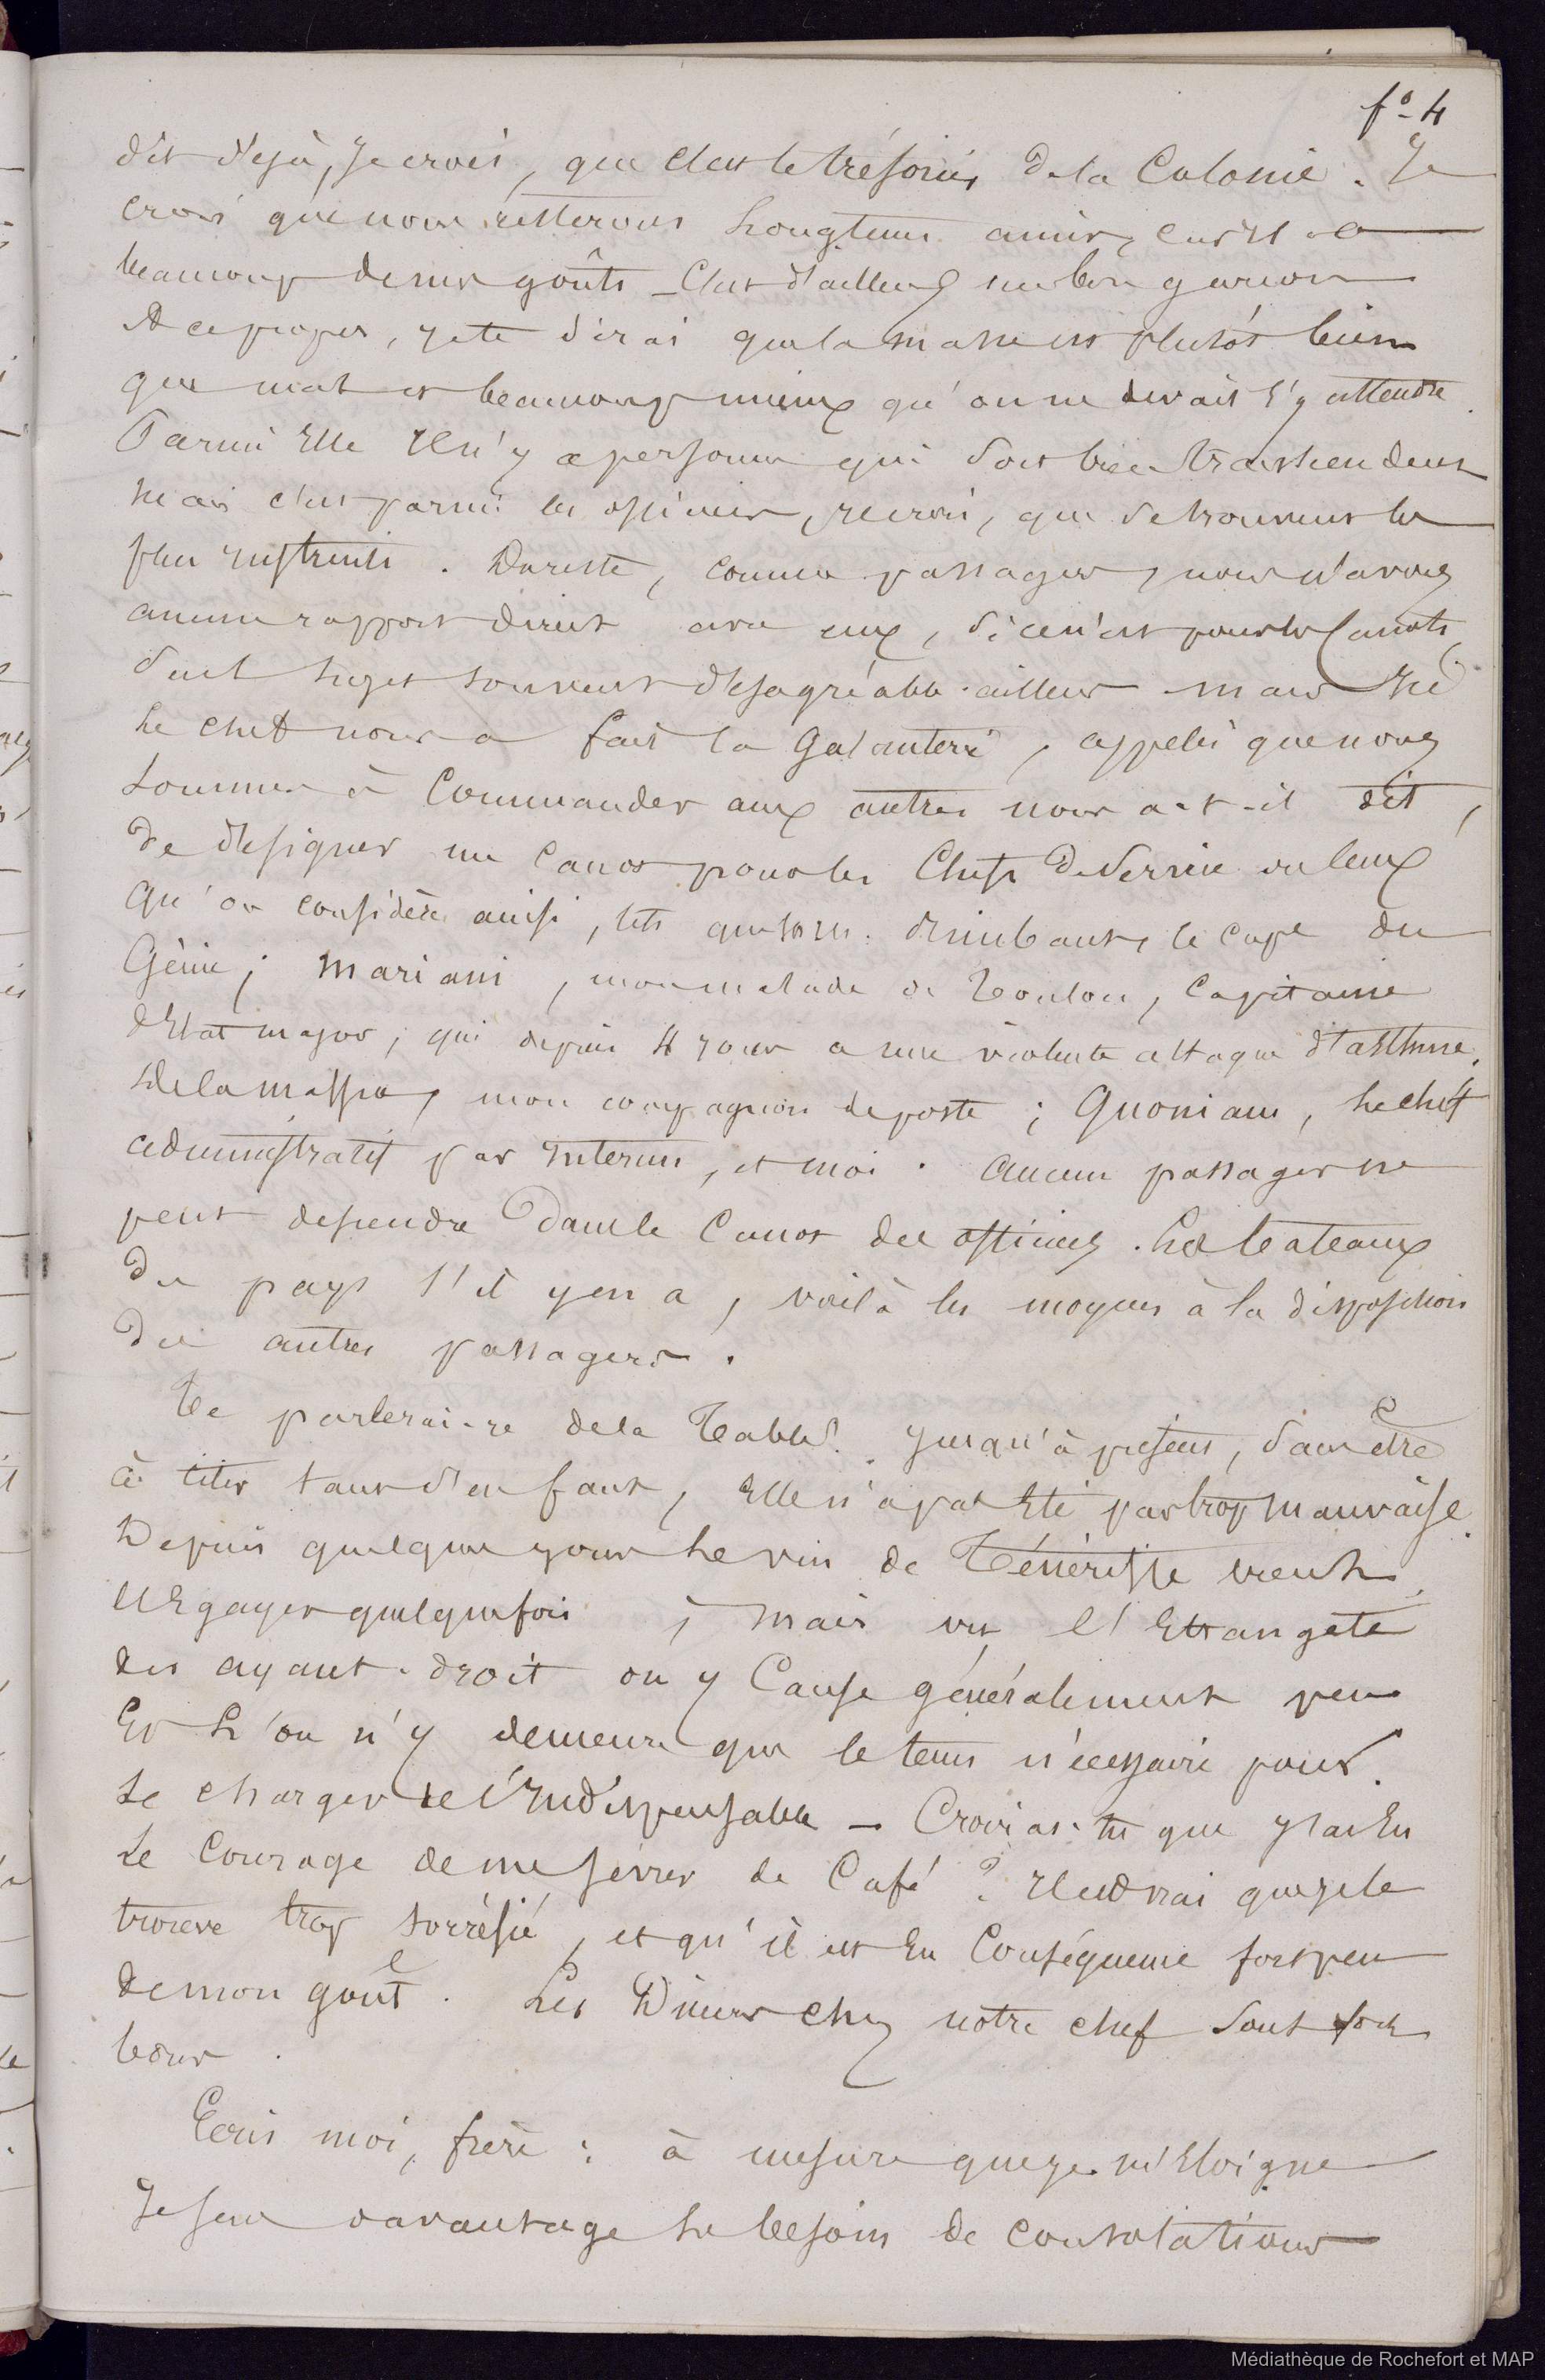 fo- 4
dit déjà, je crois, que c'est le trésorier de la Colonie. Je
crois que nous resterons longtems amis, car il a
beaucoup de mes goûts – C'est d'ailleurs un bon garçon
A ce propos, je te dirai que la masse est plutôt bien
que mal et beaucoup mieux qu'on ne devait s'y attendre.
Parmi Elle Il n'y a personne qui soit bien transcendant
mais c'est parmi les officiers, je crois, que se trouvent les
plus instruits. Du reste, comme passagers, nous n'avons
aucun rapport direct avec eux, si ce n'est pour les Canots,
seul sujet souvent désagréable ailleurs mais Ici
Le Chef nous a fait la Galanterie, appelés que nous
sommes à Commander aux autres nous a-t-il dit,
de désigner un Canot pour les Chefs de Service ou ceux
qu'on considère ainsi, tels que MM. le Cape du
Génie; Mariani, mon malade de Toulon, Capitaine
d'Etat major, qui depuis 4 jours a une violente attaque d'asthme.
mon compagnon de poste; Quoniam, le chef
administratif par Interim, et moi. Aucun passager ne
peut descendre dans le Canot des officiers. Les bateaux
du pays s'il y en a, voilà les moyens à la disposition
des autres passagers.
Te parlerai-je de la Table? Jusqu'à présent, sans être
à citer tant s'en faut, Elle n'a pas Eté par trop mauvaise.
Depuis quelques jours Le vin de Ténériffe vient
l'Egayer quelquefois; mais vu l'Etrangeté
des ayant-droit on y Cause généralement peu
Et L'on n'y demeure que le tems nécessaire pour
se charger de l'Indispensable – Croirais-tu que j'ai Eu
Le Courage de me sevrer de Café? Il est vrai que je le
trouve trop torréfié, et qu'il est En Conséquence fort peu
de mon goût. Les Diners chez notre chef sont fort
bons.
Ecris moi, frère: à mesure que je m'Eloigne
Je sens davantage Le besoin de Consolations
Médiathèque de Rochefort et MAP